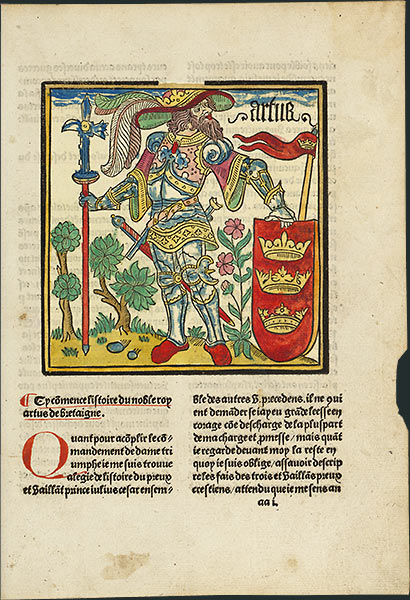 artus
Cy cõmence listoire du noble roy
artus de bretaigne.
Quant pour acõplir le cõ-
mandement de dame tri
umphe ie me suis trouue
alegie de listoire du preux
et Vaillãt prince iulius cesar ensem-
ble des autres v. precedens. il me qui
ent demãder se iay eu grãde leesse en
corage cõe de scharge de la plus part
de ma charge et pmesse / mais quãt
ie regarde deuant moy la reste en
quoy ie suis oblige / assauoir descrip
re les fais des trois et Vaillãs preux
crestiens / attendu que ie me sens an
aa i.